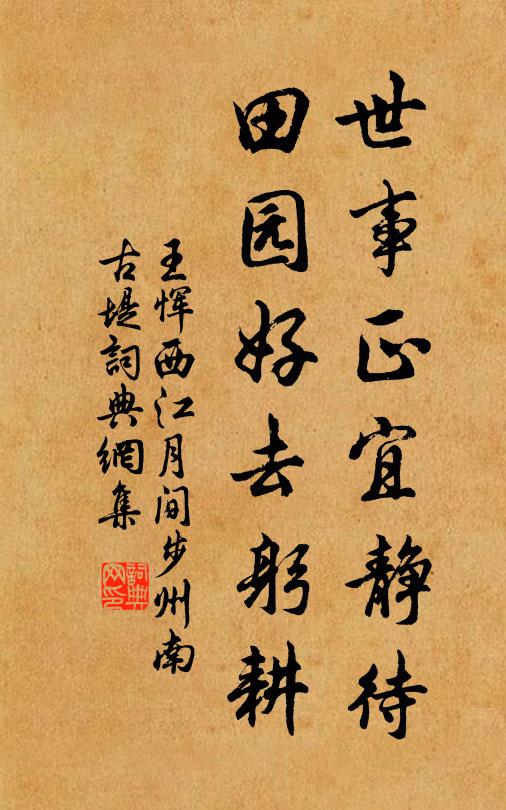 世事正宜静待
田园好去躬耕
王恽西江月间步州南
古堤詞典網集
詞典
网印